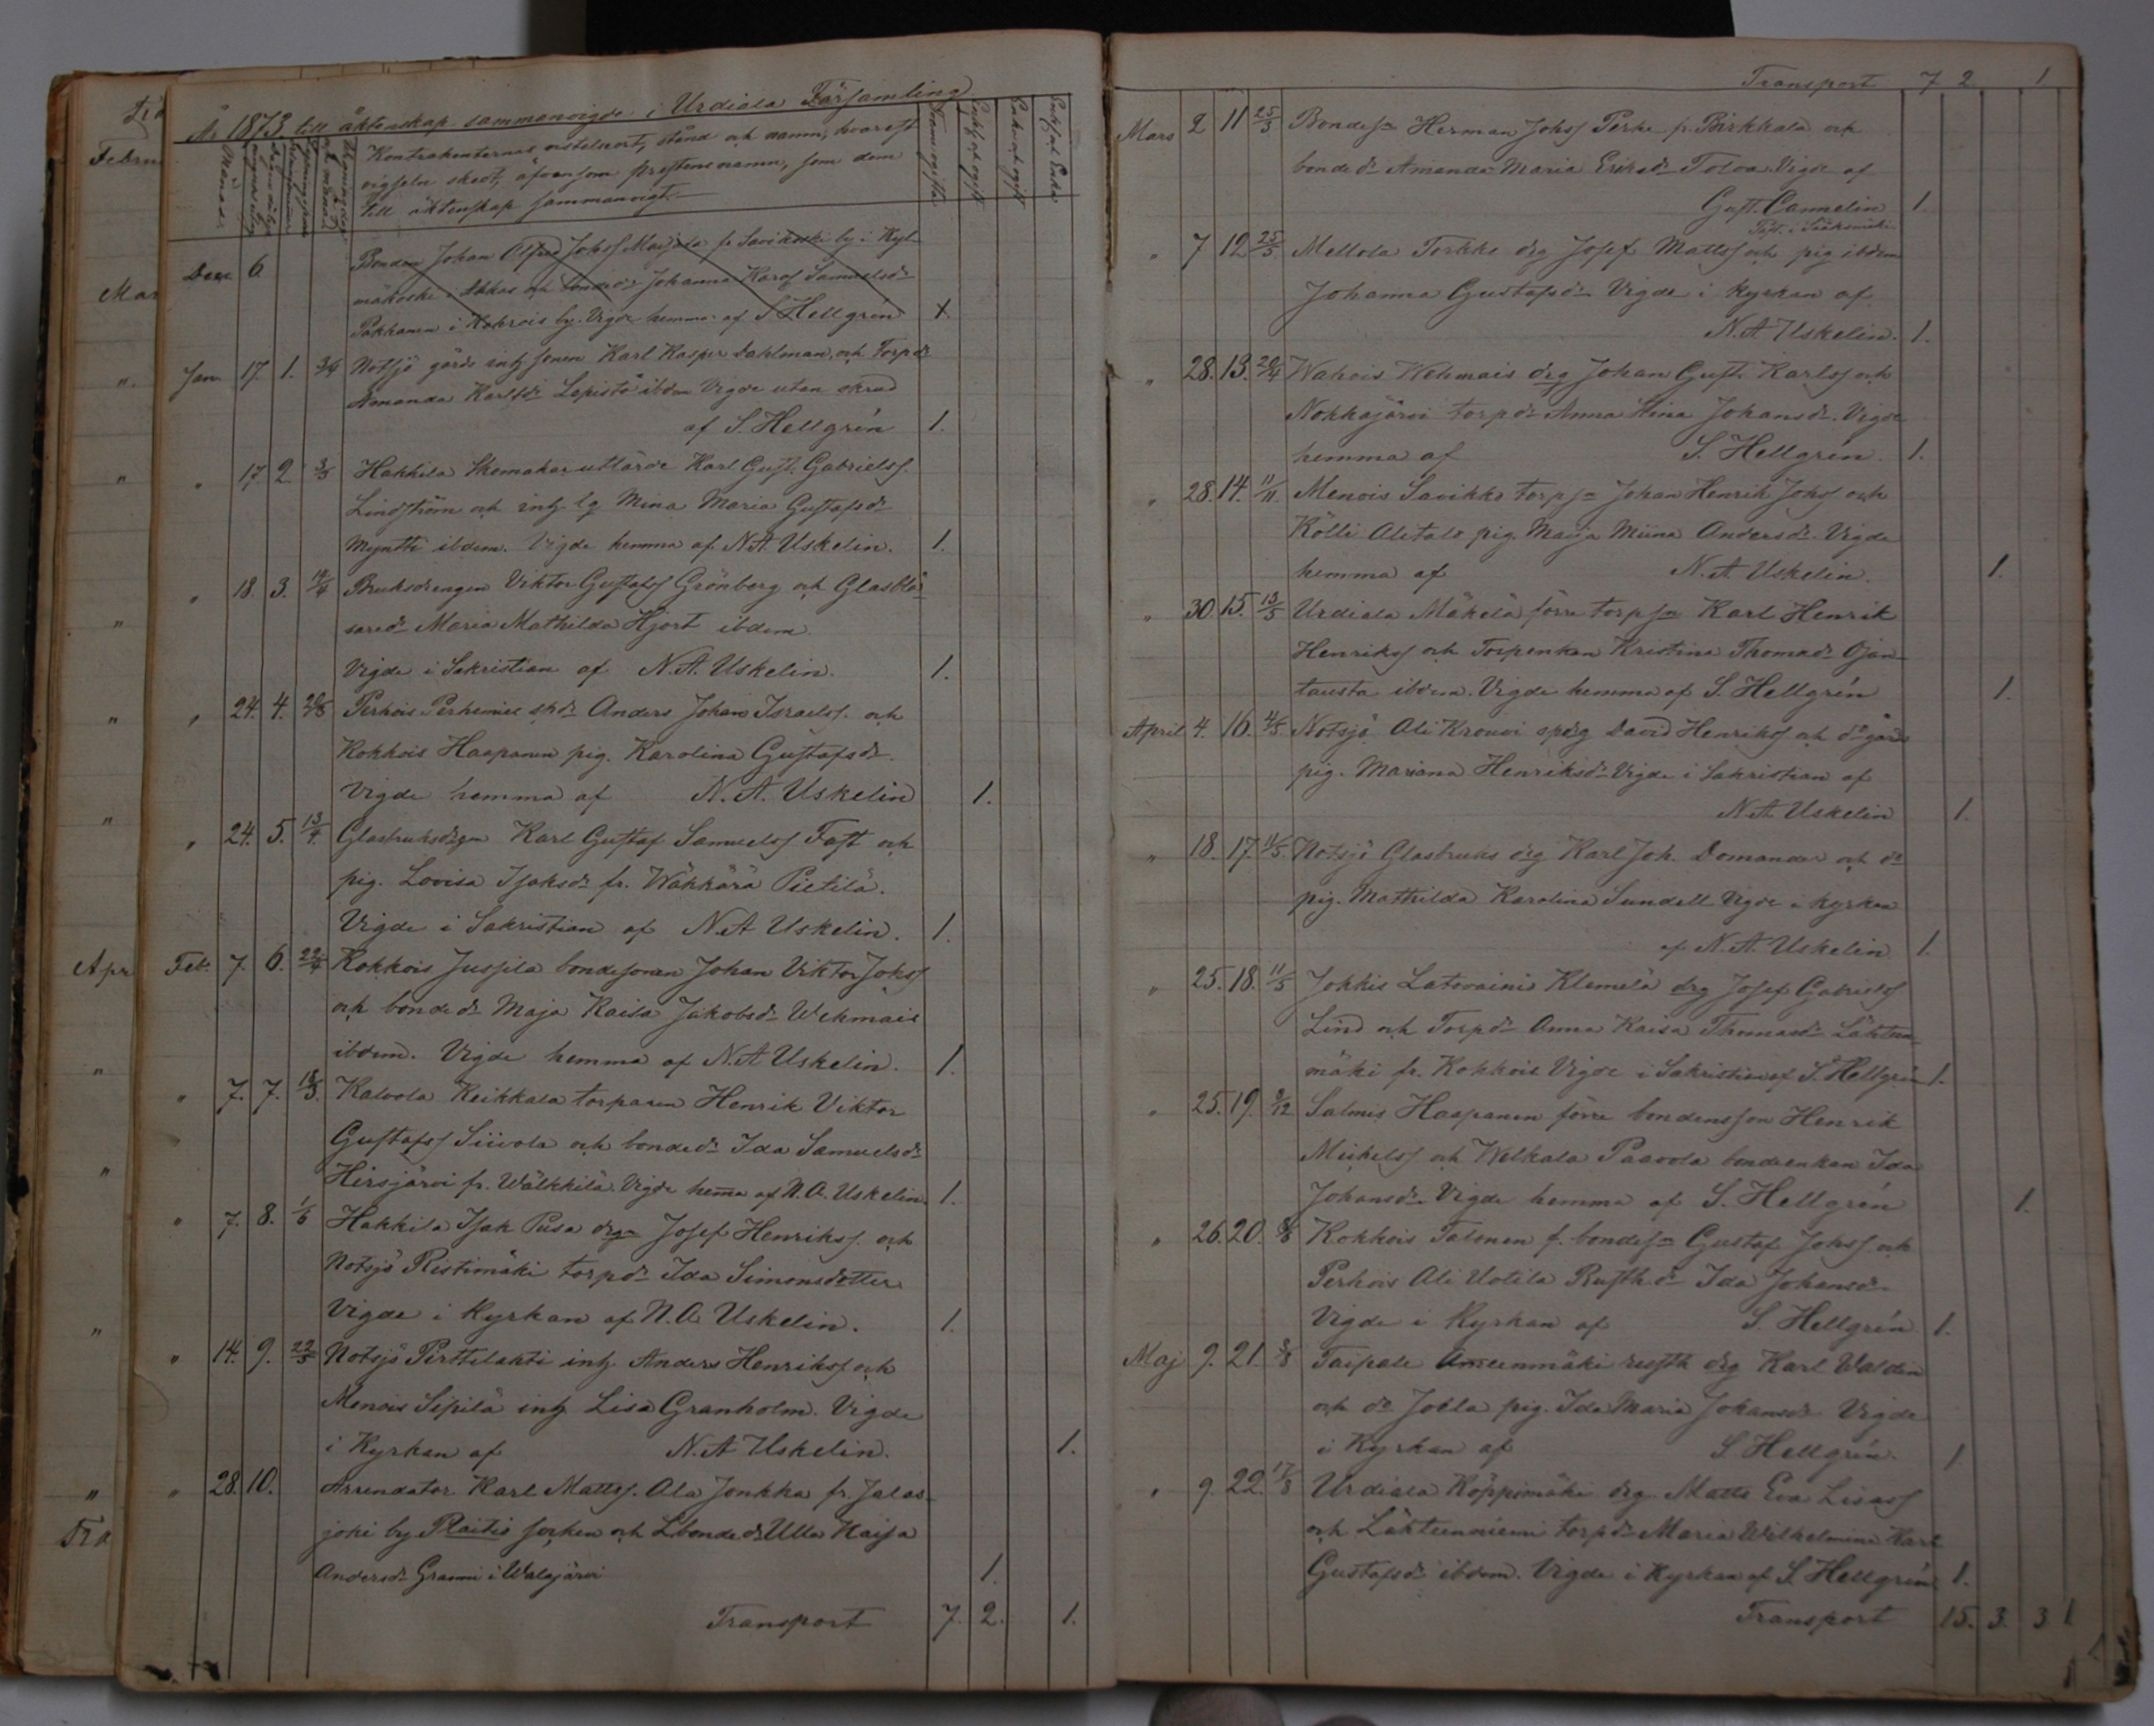 År 1873 till äktenskap sammanvigde i Urdiala Församling
Månad
Kontrahenternas vistelseort, stånd och namn, hvarest
vigseln skedt, äfvensom prestens namn, som dem
till äktenskap sammanvigt.
Dec 6 Bonden Johan Alfred Johss Maijala fr Savikoski by i Kyl-
mäkoski i Akkas och bonded. Johanna Karol. Samuelsdr
Pakkanen i Kokkois by. Vigde hemma af S Hellgrén X
Jan. 17. 1. Notsjö gårds inh. sonen Karl Kasper Dahlman och Torpdr
Amanda Karlsdr Lepistö ibdm Vigde utan skrud
af S. Hellgrén 1.
" 17. 2. Hakkila Skomakareutlärde Karl Gust. Gabrielss.
Lindström och inh. Mina Maria Gustafsdr
Myntti ibdem. Vigde hemma af N. A. Uskelin. 1.
" 18. 3. Bruksdrengen Viktor Gustafss Grönberg och Glasblå-
saredr Maria Mathilda Hjort ibdem
Vigde i Sakristian af N. A. Uskelin. 1.
" 24. 4. Perhois Perhemiel Anders Johan Israelss. och
Kokkois Haapanen pig. Karolina Gustafsdr.
Vigde hemma af N. A. Uskelin 1.
" 24. 5. 13/4 Glasbruksdrgn Karl Gustaf Samuelss Fast och
pig. Lovisa Isaksdr fr. Wäkkärä Pietilä.
Vigde i Sakristian af N. A Uskelin. 1.
Feb. 7. 6. 22/4 Kokkois Jussila bondesonen Johan Viktor Johss
och bondedr Maja Kaisa Jakobsdr Wehmais
ibdem. Vigde hemma af N. A Uskelin. 1.
" 7. 7. 18/3 Kalvola Keikkala torparen Henrik Viktor
Gustafss Siivola och bondedr Ida Samuelsdr
Hirsjärvi fr. Wälkkilä. Vigde hemma af N. A. Uskelin. 1.
" 7. 8. Hakkila Isak Pusa drgn Josef Henrikss. och
Notsjö Ristimäki torpdr Ida Simonsdotter
Vigde i Kyrkan af N. A Uskelin. 1.
" 14. 9. 22/3 Notsjö Perttelahti inh. Anders Henrikss och
Menois Sipilä inh. Lisa Granholm. Vigde
i Kyrkan af N. A Uskelin. 1.
" 28. 10. Arrendator Karl Mattss. Ala Jonkka fr. Jalas-
joki by Plaitis socken och bondedr Ulla Kaisa
Andersdr Granni i Walajärvi 1.
Transport 7. 2. 1.
Transport 7 2 1
Mars 2 11 25/3 Bondesn Herman Johss Perke fr. Birkkala och
bondedr Amanda Maria Eriksdr Tolva Vigde af
Gust. Cannelin 1.
Past. i Sääksmäki
" 7 12 25/3. Mellola Torkko drg Josef Mattss och pig ibdem
Johanna Gustafsdr Vigde i Kyrkan af
N. A Uskelin. 1.
" 28. 13. 20/4 Wahois Wehmais drg Johan Gust. Karlss och
Nokkajärvi torpdr Anna Stina Johansdr. Vigde
hemma af S. Hellgrén. 1.
" 28. 14. 11/11. Menois Savikko torpsn Johan Henrik Johss och
Kölli Alitalo pig. Maija Miina Andersdr Vigde
hemma af N. A. Uskelin. 1.
" 30. 15. 13/5 Urdiala Mäkelä förre torpsn Karl Henrik
Henrikss och Torpenkan Kristina Thomasdr Ojan-
tausta ibdem. Vigde hemma af S. Hellgrén 1.
April 4. 16. 4/5 Notsjö Ali Krouvi drg David Henrikss och do gårds
pig. Mariana Henriksdr Vigde i Sakristian af
N. A. Uskelin 1.
" 18. 17. 11/5. Notsjö Glasbruks drg Karl Joh. Domander och do
pig. Mathilda Karolina Sundell Vigde i Kyrkan
af N. A. Uskelin 1.
" 25. 18. 11/5 Jokkis Latovainio Klemelä drg Josef Gabrielss
Lind och Torpdr Anna Kaisa Thomasdr Lähteen-
mäki fr. Kokkois Vigde i Sakristian af S. Hellgrén 1.
" 25. 19. 9/12 Salmis Haapanen förre bondesson Henrik
Mickelss och Welkala Paavola bondeenkan Ida
Johansdr. Vigde hemma af S. Hellgrén 1.
" 26. 20. Kokkois Talonen f. bondesn Gustaf Johss och
Perhois Ali Uotila Rusthdr Ida Johansdr
Vigde i Kyrkan af S. Hellgrén 1.
Maj 9. 21. Taipale rusth drg Karl Walden
och do Jolla pig. Ida Maria Johansdr Vigde
i Kyrkan af S. Hellgrén. 1
" 9. 22. 17/8 Urdiala Köppimäki drg. Matts Eva Lisass
och Lähteenniemi torpdr Maria Wilhelmina Karl
Gustafsdr ibdem. Vigde i Kyrkan af S. Hellgrén 1.
Transport 15. 3. 3 1